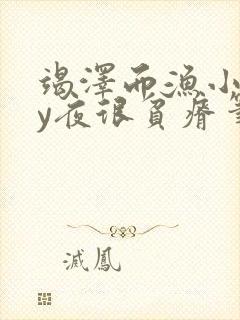 竭澤而漁小
y夜很貧瘠
滅鳳